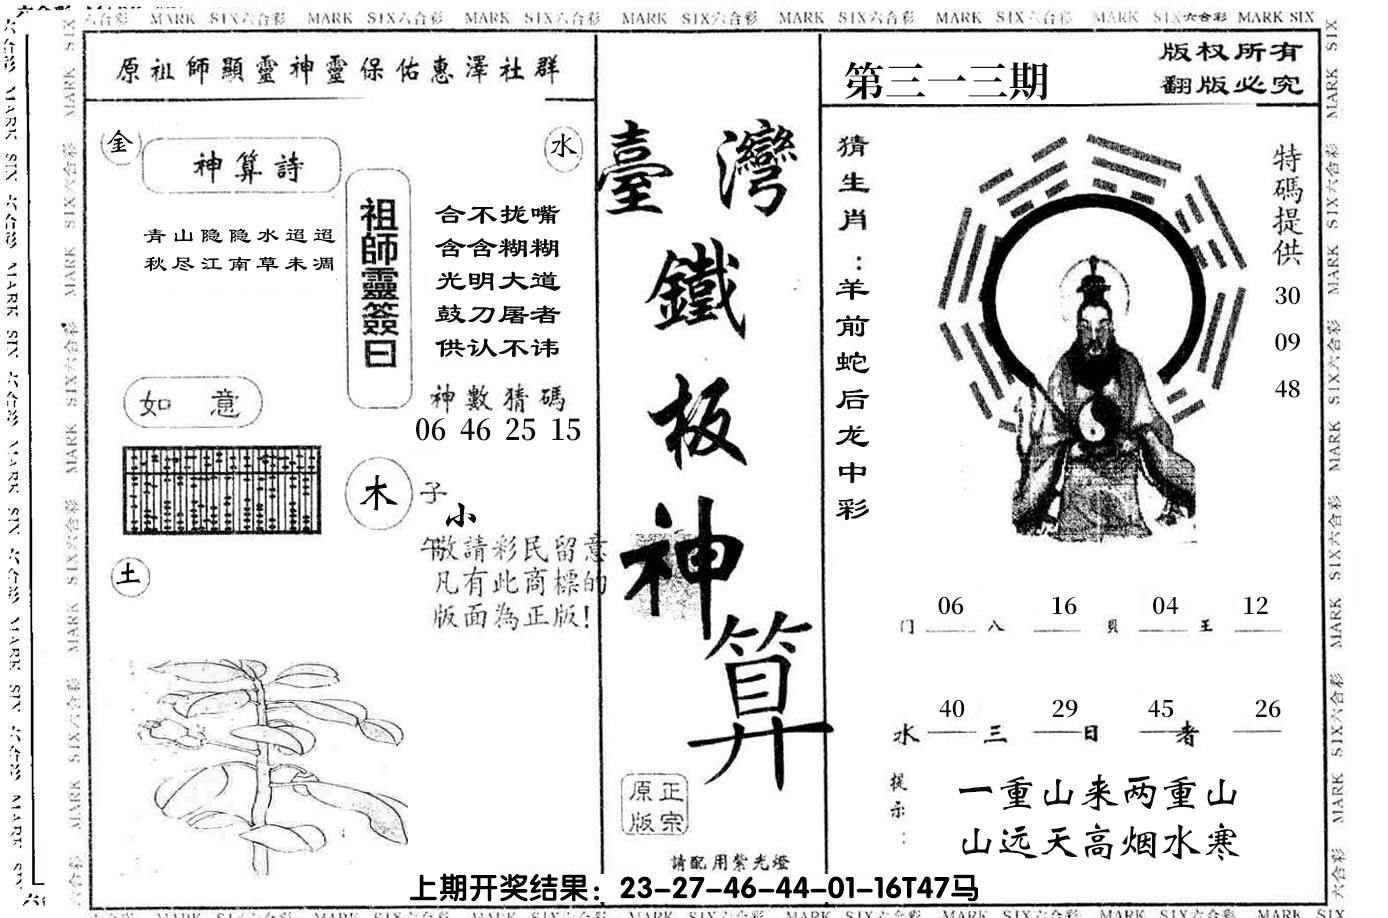 MARK SIX六合彩 MARK SIX六合彩 MARK SIX六合彩 MARK SIX六合彩 MARK SIX六合彩 MARK SIX六合彩 MARK SIX六合彩 MARK SIX
原祖師顯靈神靈保佑惠澤社群
金
神算詩
青山隐隐水迢迢
秋尽江南草未凋
如 意
土
水
祖師靈簽曰
合不拢嘴
含含糊糊
光明大道
鼓刀屠者
供认不讳
神數猜碼
06 46 25 15
木
子
小
午敬請彩民留意
凡有此商標的
版面為正版!
臺灣
鐵
板
神
算
正宗
原版
請配用紫光燈
第三一三期
版权所有
翻版必究
猜生肖:羊前蛇后龙中彩
特碼提供
30
09
48
06 16 04 12
门 八 貝 王
40 29 45 26
水 三 日 者
提示:
一重山来两重山
山远天高烟水寒
上期开奖结果：23-27-46-44-01-16T47马